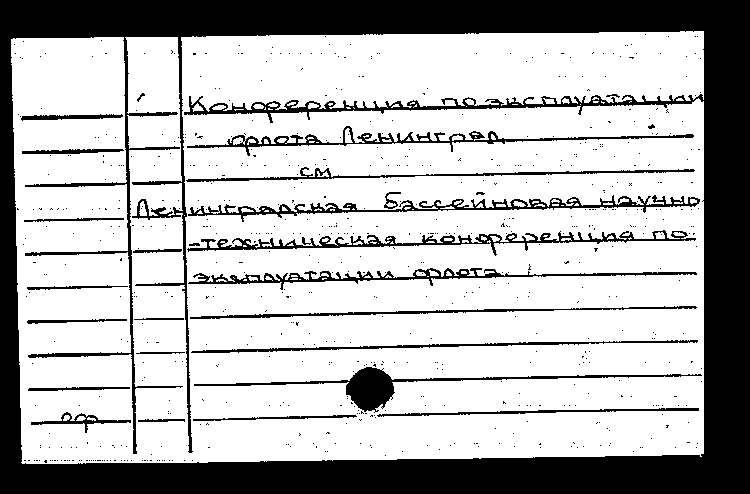 Конференция по эксплуатации
флота. Ленинград.
см
Ленинградская бассейновая научно
-техническая конференция по
эксплуатации флота.
оф.